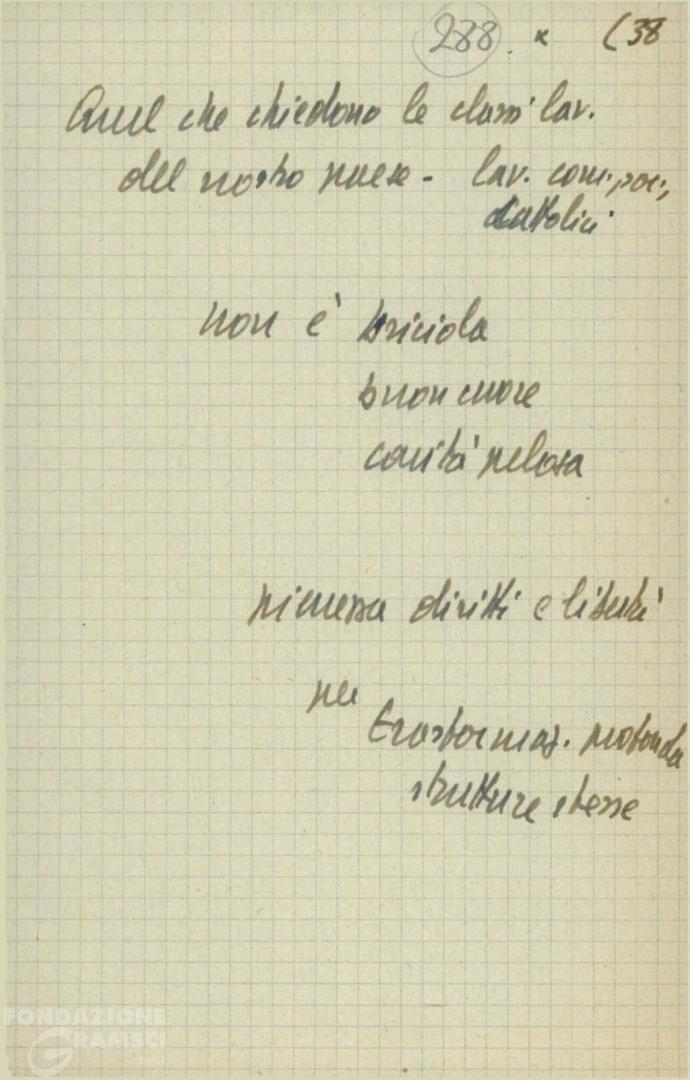 288 x (38
Quel che chiedono le classi lav.
del nostro paese - lav. com., soc.,
cattolici
non è briciola
buon cuore
carità pelosa
pienezza diritti e libertà
per
trasformaz. profonda
strutture stesse
FONDAZIONE
GRAMSCI